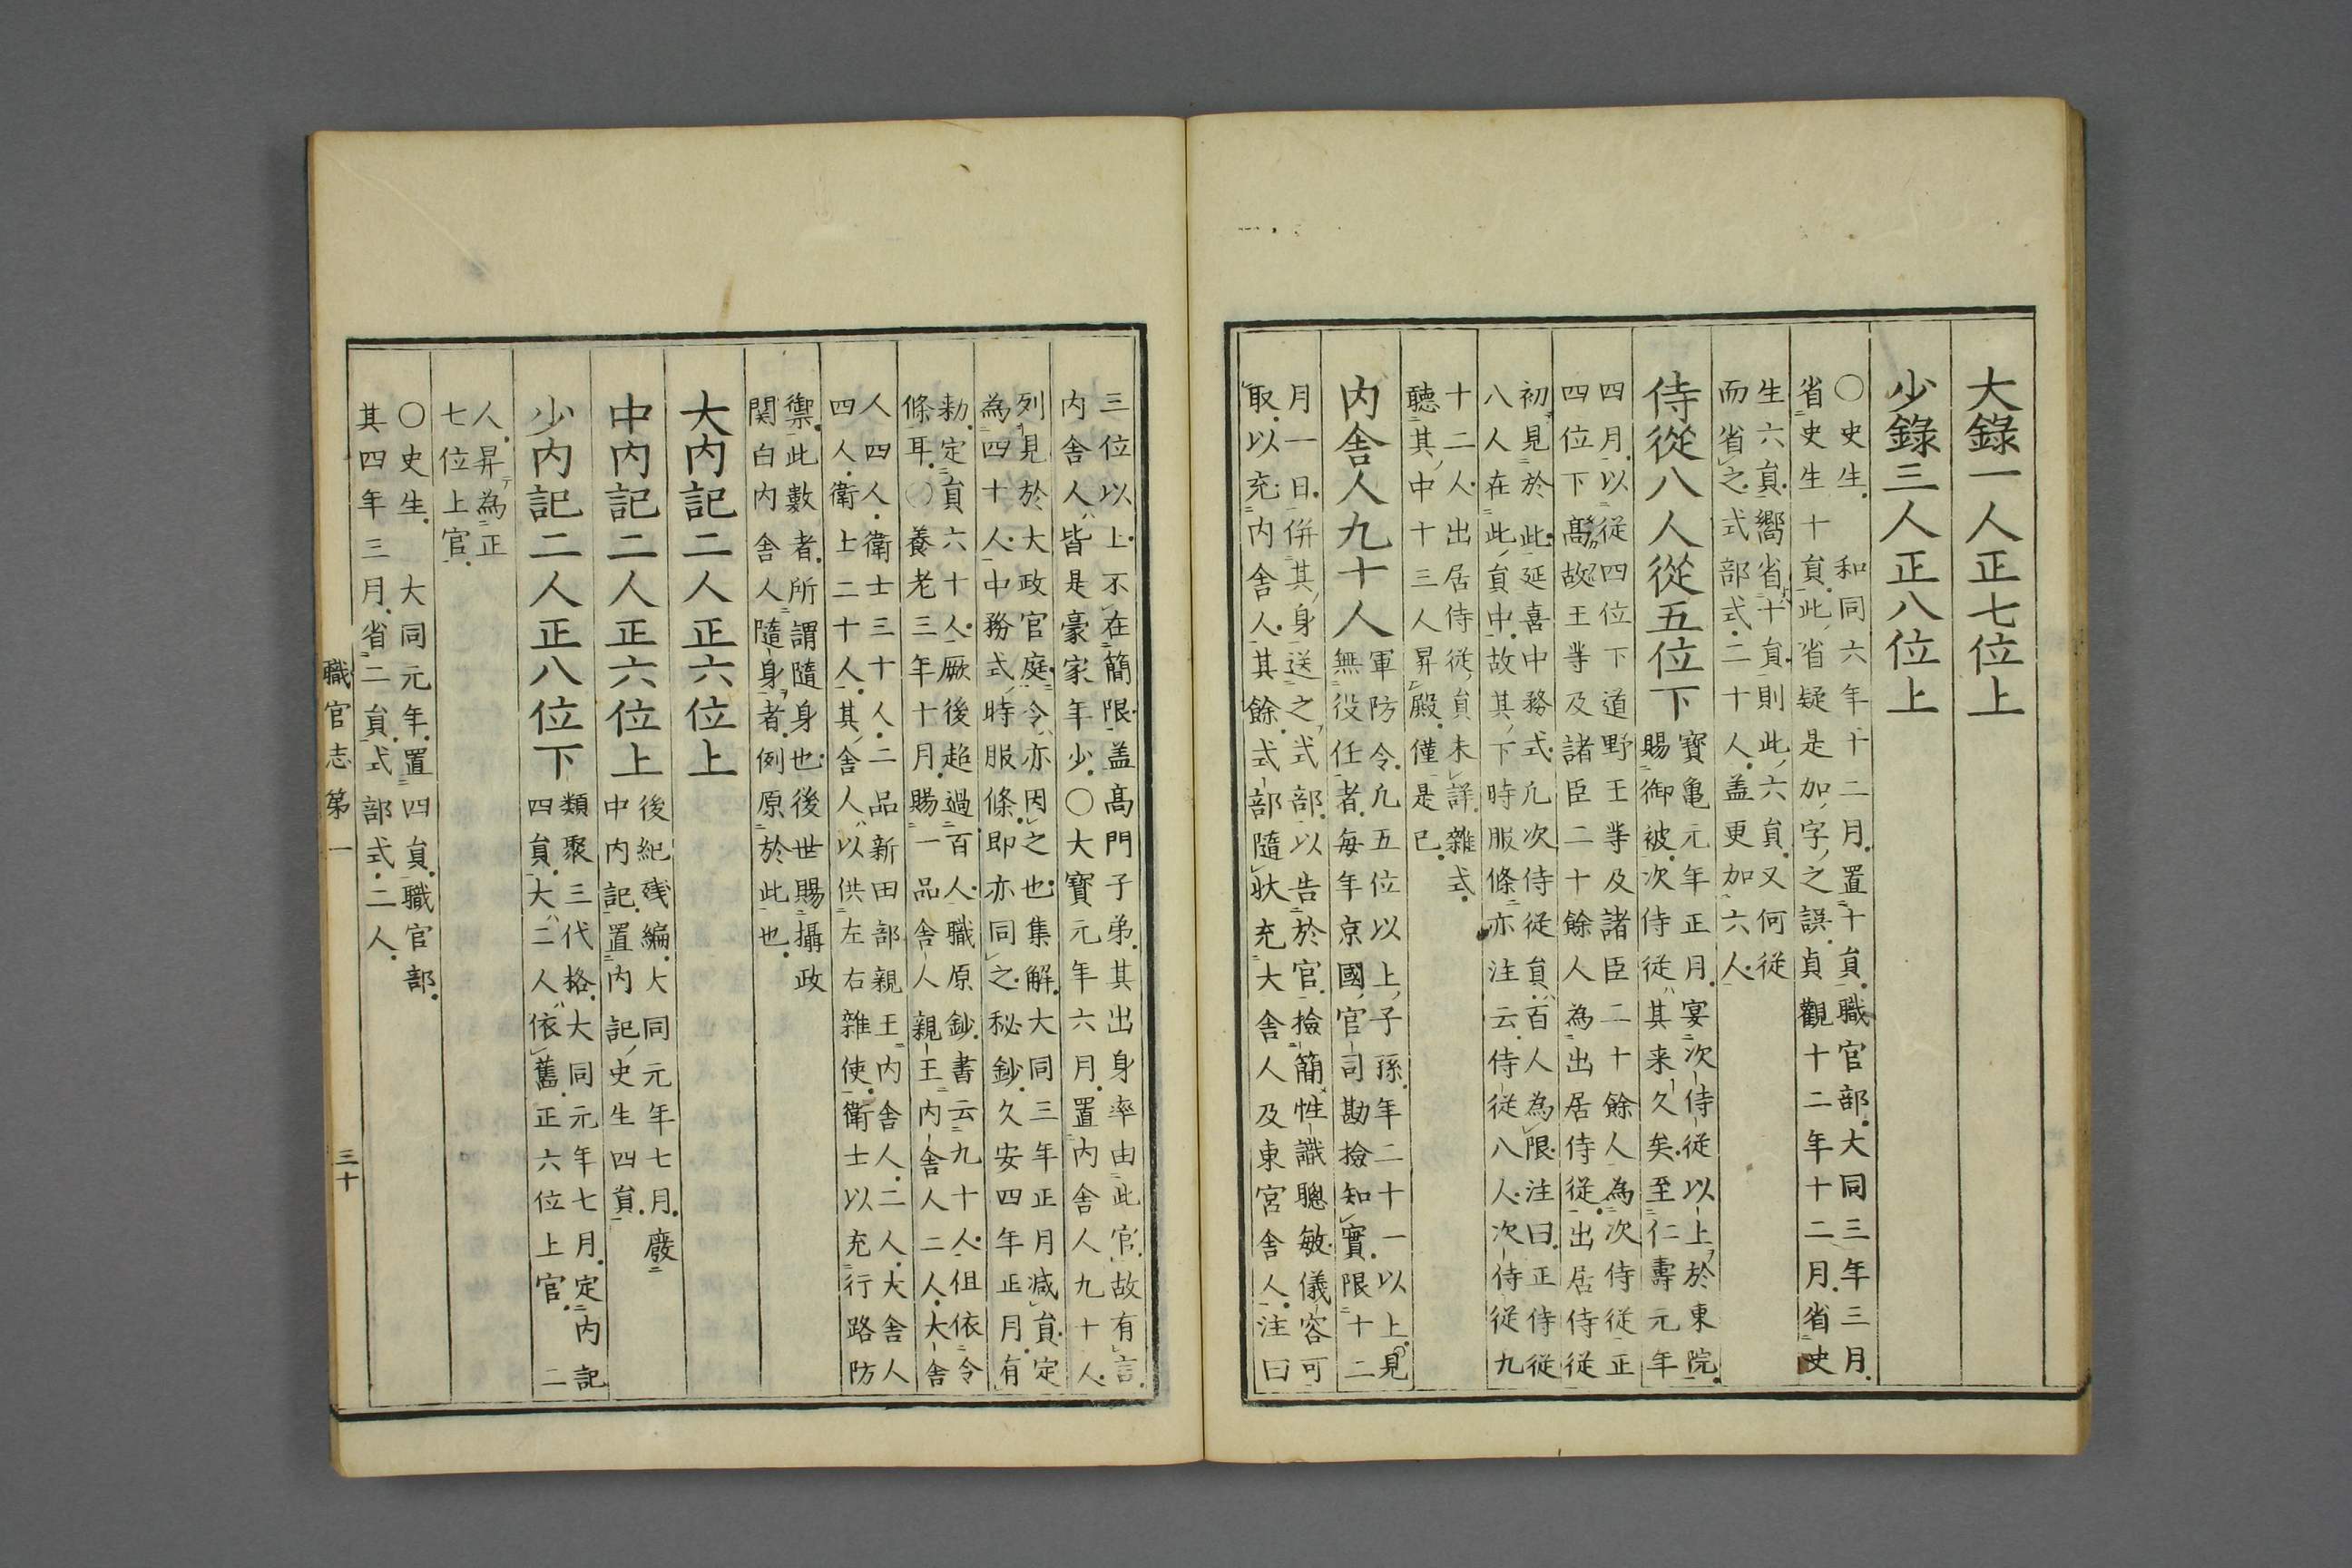 大錄一人正七位上
少錄三人正八位上
○史生 和同六年十二月置十員職官部大同三年三月
省史生十員此省疑是加字之誤貞觀十二年十二月省史
生六員嚮省十員則此六員又何從
而省之式部式二十人盖更加六人
侍從八人從五位下
寶亀元年正月宴次侍従以上於東院
賜御被次侍従其来久矣至仁壽元年
四月以従四位下道野王䓁及諸臣二十餘人為次侍従正
四位下髙故王䓁及諸臣二十餘人為出居侍従出居侍従
初見於此延喜中務式凢次侍従員百人為限注曰正侍従
八人在此員中故其下時服條亦注云侍従八人次侍従九
十二人出居侍従員未詳雜式
聽其中十三人昇殿僅是已
内舎人九十人
軍防令凢五位以上子孫年二十一以上見
無役任者毎年京國官司勘撿知實限十二
月一日併其身送之式部以告於官撿簡性識聰敏儀容可
取以充内舎人其餘式部隨狀充大舎人及東宮舎人注曰
三位以上不在簡限盖髙門子弟其出身率由此官故有言
内舎人皆是豪家年少○大寶元年六月置内舎人九十人
列見於大政官庭令亦因之也集解大同三年正月减員定
為四十人中務式時服條即亦同之秘鈔久安四年正月有
勅定員六十人厥後超過百人職原鈔書云九十人伹依令
條耳○養老三年十月賜一品舎人親王内舎人二人大舎
人四人衛士三十人二品新田部親王内舎人二人大舎人
四人衛士二十人其舎人以供左右雜使衛士以充行路防
禦此數者所謂隨身也後世賜攝政
関白内舎人隨身者例原於此也
大内記二人正六位上
中内記二人正六位上
後紀残編大同元年七月廢
中内記置内記史生四員
少内記二人正八位下
類聚三代格大同元年七月定内記
四員大二人依舊正六位上官二
人昇為正
七位上官
○史生 大同元年置四員職官部
其四年三月省二員式部式二人
職官志第一
三十